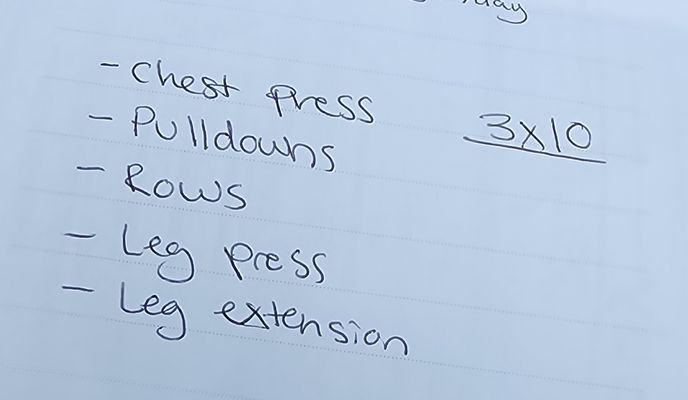 - Chest press
3x10
- Pulldowns
- Rows
- Leg press
- Leg extension